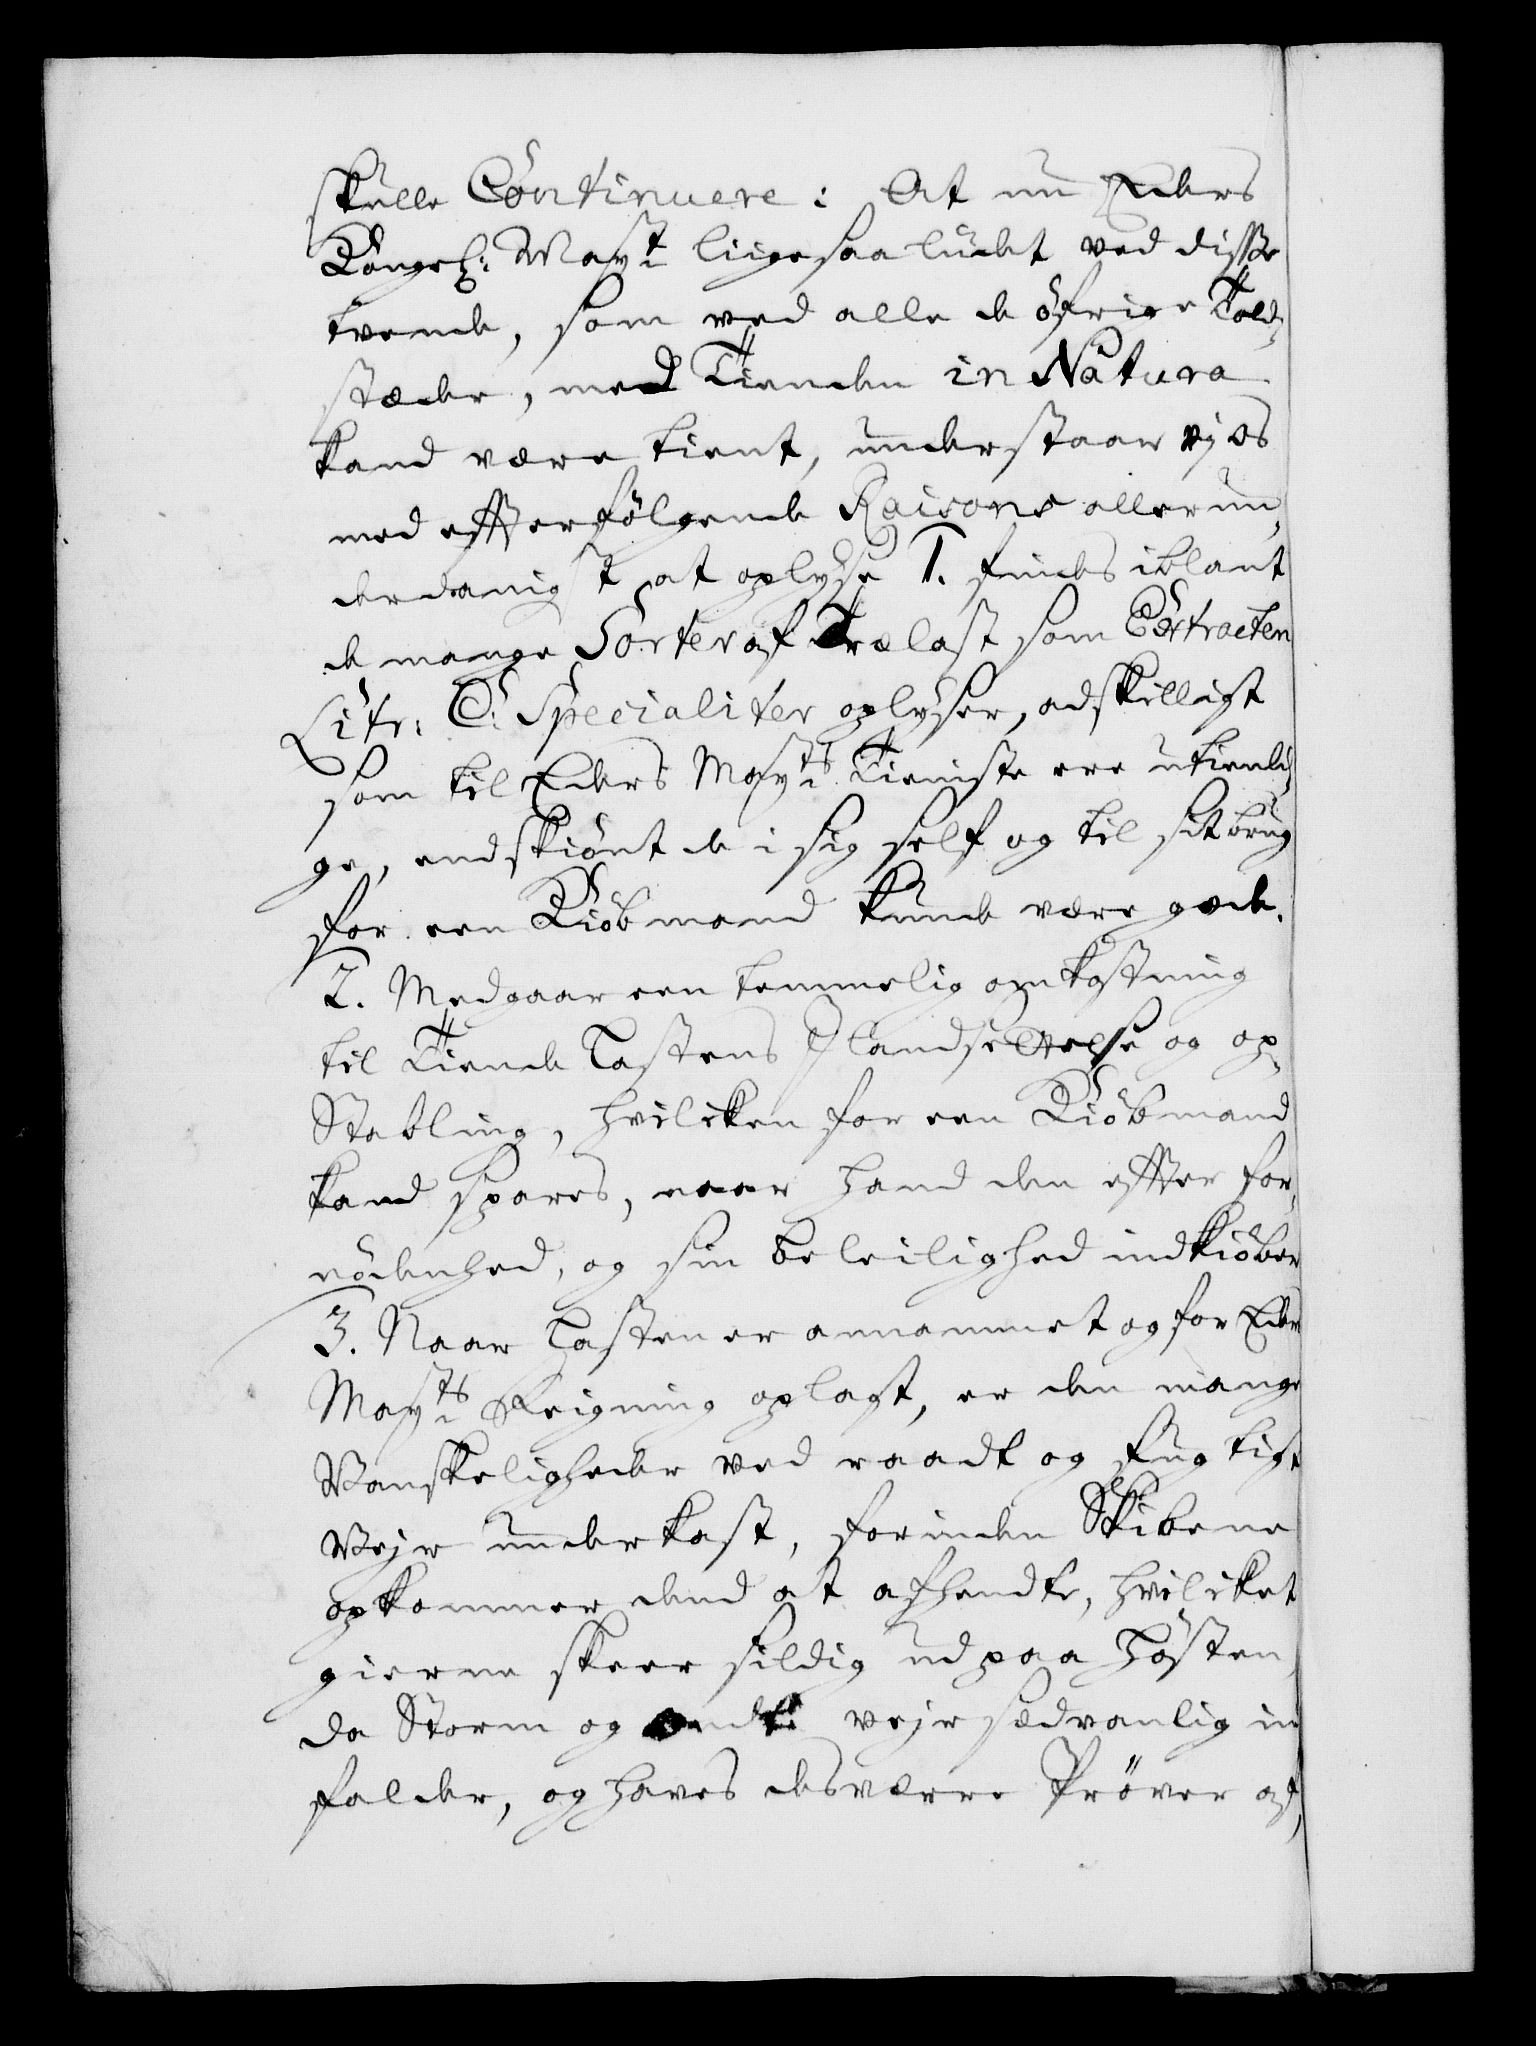 skulle Continuere: At nu Eders
Kongel: May:t liigesaa lidet ved disse
tvende, som ved alle de öfrige Told¬
stæder, med Tienden in Natura
kand være tient, understaar vj os
med effterfölgende Raisons allerun¬
derdanigst at oplyse 1. findes iblant
de mange Sorter af Trælast som Extracten
Litr: C: Specialiter oplyser, adskilligt
som til Eders May:ts Tieniste ere utienli¬
ge, endskiönt de i sig self og til sit brug
for een Kiöbmand kunde være gode.
2. Medgaar een temmelig omkostning
til Tiende Lastens Ilandsettelse og op¬
Stabling, hvilcken for een Kiöbmand
kand spares, naar hand den effter for¬
nödenhed, og sin beleilighed indkiöber
3. Naar Lasten er annammet og for Eders
May:ts Reigning oplagt, er den mange
Vanskeligheder ved raadt og fugtigt
Vejr underkast, forinden Skibene
opkommer dend at afhendte, hvilcket
gierne skeer sildig ud paa Hösten,
da Storm og ondt vejr sædvanlig in
falder, og haves desværre Pröver af,